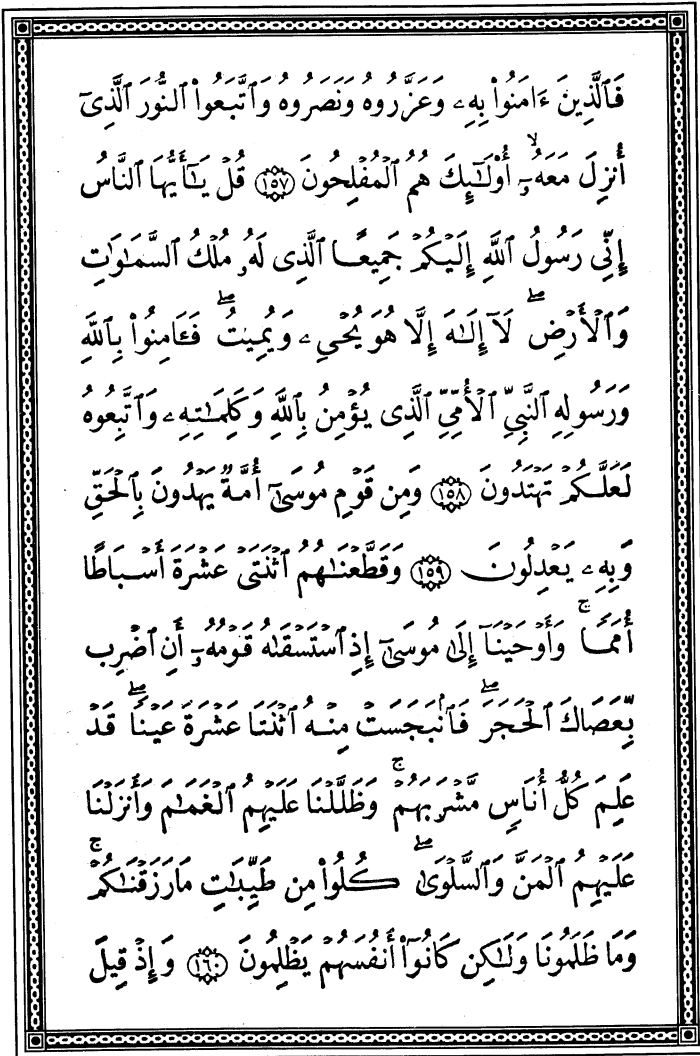 فَٱلَّذِينَ ءَامَنُوا۟ بِهِۦ وَعَزَّرُوهُ وَنَصَرُوهُ وَٱتَّبَعُوا۟ ٱلنُّورَ ٱلَّذِىٓ
أُنزِلَ مَعَهُۥٓ ۙ أُو۟لَـٰٓئِكَ هُمُ ٱلْمُفْلِحُونَ ١٥٧ قُلْ يَـٰٓأَيُّهَا ٱلنَّاسُ
إِنِّى رَسُولُ ٱللَّهِ إِلَيْكُمْ جَمِيعًا ٱلَّذِى لَهُۥ مُلْكُ ٱلسَّمَـٰوَٰتِ
وَٱلْأَرْضِ ۖ لَآ إِلَـٰهَ إِلَّا هُوَ يُحْىِۦ وَيُمِيتُ ۖ فَـَٔامِنُوا۟ بِٱللَّهِ
وَرَسُولِهِ ٱلنَّبِىِّ ٱلْأُمِّىِّ ٱلَّذِى يُؤْمِنُ بِٱللَّهِ وَكَلِمَـٰتِهِۦ وَٱتَّبِعُوهُ
لَعَلَّكُمْ تَهْتَدُونَ ١٥٨ وَمِن قَوْمِ مُوسَىٰٓ أُمَّةٌ يَهْدُونَ بِٱلْحَقِّ
وَبِهِۦ يَعْدِلُونَ ١٥٩ وَقَطَّعْنَـٰهُمُ ٱثْنَتَىْ عَشْرَةَ أَسْبَاطًا
أُمَمًا ۚ وَأَوْحَيْنَآ إِلَىٰ مُوسَىٰٓ إِذِ ٱسْتَسْقَىٰهُ قَوْمُهُۥٓ أَنِ ٱضْرِب
بِّعَصَاكَ ٱلْحَجَرَ ۖ فَٱنۢبَجَسَتْ مِنْهُ ٱثْنَتَا عَشْرَةَ عَيْنًا ۖ قَدْ
عَلِمَ كُلُّ أُنَاسٍ مَّشْرَبَهُمْ ۚ وَظَلَّلْنَا عَلَيْهِمُ ٱلْغَمَـٰمَ وَأَنزَلْنَا
عَلَيْهِمُ ٱلْمَنَّ وَٱلسَّلْوَىٰ ۖ كُلُوا۟ مِن طَيِّبَـٰتِ مَا رَزَقْنَـٰكُمْ ۚ
وَمَا ظَلَمُونَا وَلَـٰكِن كَانُوٓا۟ أَنفُسَهُمْ يَظْلِمُونَ ١٦٠ وَإِذْ قِيلَ